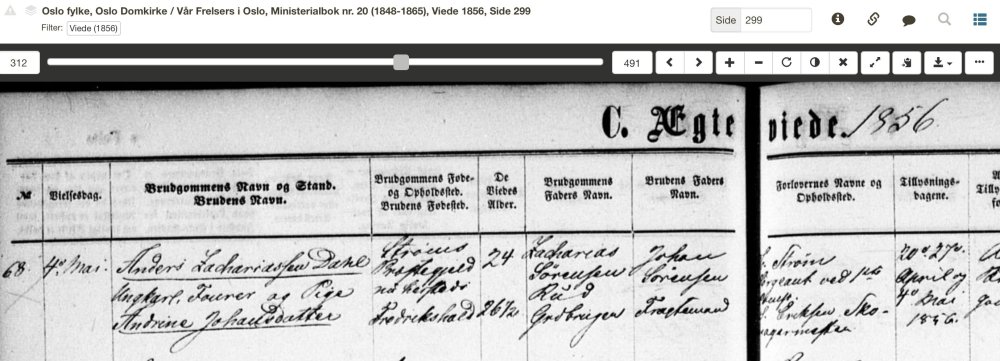 Oslo fylke, Oslo Domkirke / Vår Frelsers i Oslo, Ministerialbok nr. 20 (1848-1865), Viede 1856, Side 299
Filter: Viede (1856)
Side 299
312
491
C. Ægte viede. 1856
№
Vielsesdag.
Brudgommens Navn og Stand.
Brudens Navn.
Brudgommens Føde-
og Opholdssted.
Brudens Fødested.
De
Viedes
Alder.
Brudgommens
Faders Navn.
Brudens Faders
Navn.
Forlovernes Navne og
Opholdssted.
Tillysnings-
dagene.
68.
4de Mai.
Anders Zachariassen Dahl
Ungkarl, Fourer og Pige
Andrine Johansdatter
Strøms
Præstegjeld
Fredrikshald
24
26½
Zacharias
Sørensen
Rud
Grdbrugen
Johan
Sørensen
Fragtemand
Strøm
Sergeant ved
Eriksen Sko-
magermester
20de 27de
April og
4de Mai
1856.